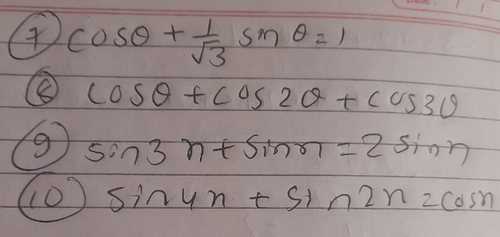 ⑦ cosθ + 1/√3 sin θ = 1
⑧ cosθ + cos2θ + cos3θ
⑨ sin3x + sinx = 2 sinx
⑩ sin4x + sin2x = cosx